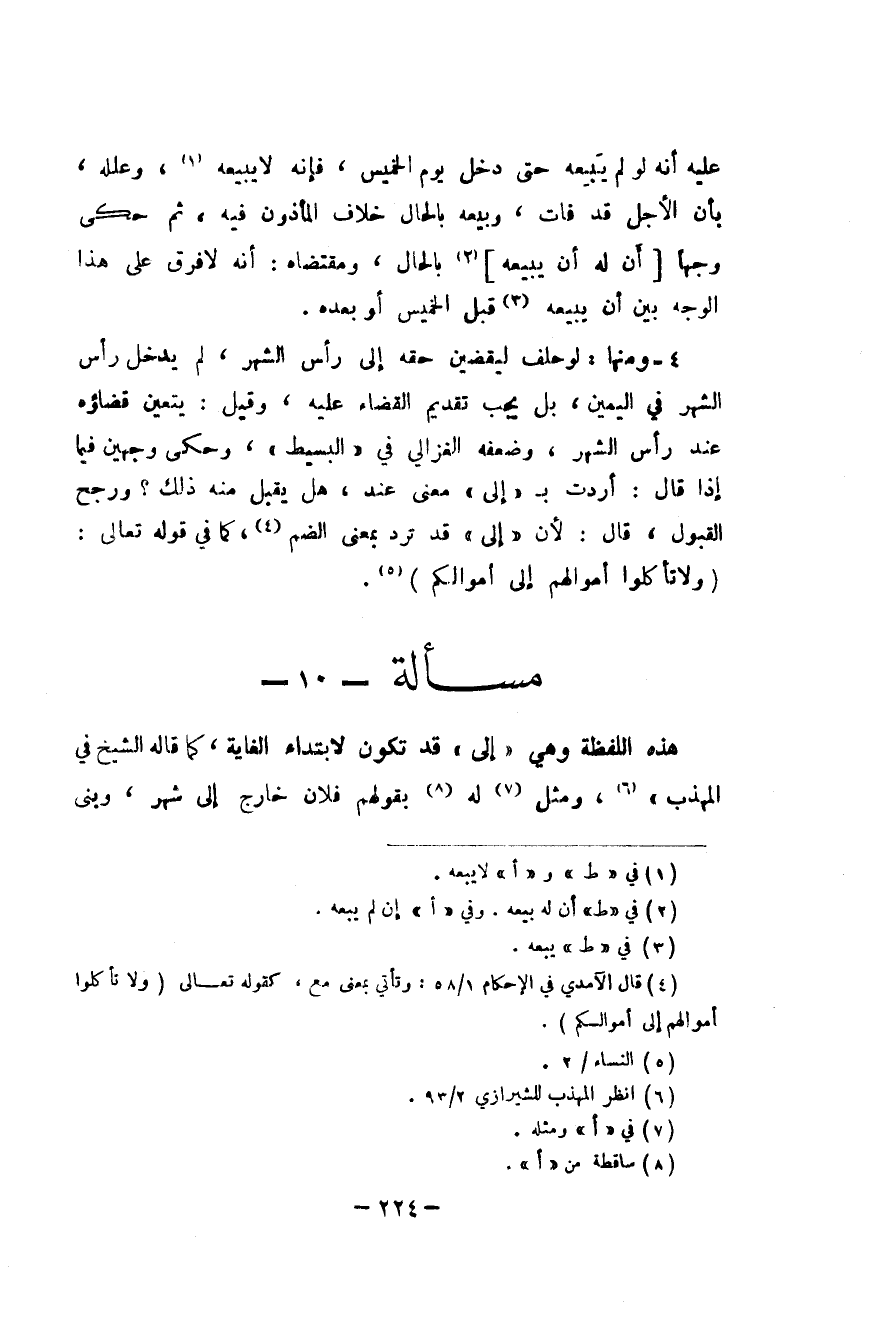 عليه أنه لو لم يَبيعه حتى دخل يوم الخميس ، فإنه لايبيعه (١) ، وعلله ،
بأن الأجل قد فات ، وبيعه بالحال خلاف المأذون فيه ، ثم حكى
وجهاً [ أَن له أن يبيعه ](٢) بالحال ، ومقتضاه : أنه لافرق على هذا
الوجه بين أن يبيعه (٣) قبل الخميس أو بعده .
٤ ـ ومنها : لوحلف ليقضين حقه إلى رأس الشهر ، لم يدخل رأس
الشهر في اليمين ، بل يجب تقديم القضاء عليه ، وقيل : يتعين قضاؤه
عند رأس الشهر ، وضعفه الغزالي في « البسيط » ، وحكى وجهين فيما
إذا قال : أردت بـ « إلى » معنى عند ، هل يقبل منه ذلك ؟ ورجح
القبول ، قال : لأن « إلى » قد ترد بمعنى الضم (٤) ، كما في قوله تعالى :
( ولاتأكلوا أموالهم إلى أموالكم ) (٥) .
مسـألة – ١٠ –
هذه اللفظة وهي « إلى » قد تكون لابتداء الغاية ، كما قاله الشيخ في
المهذب » (٦) ، ومثل (٧) له (٨) بقولهم فلان خارج إلى شهر ، وبنى
(١) في « ط » و « أ » لايبعه .
(٢) في «ط» أن له بيعه . وفي « أ » إن لم يبعه .
(٣) في « ط » يبعه .
(٤) قال الآمدي في الإحكام ٥٨/١ : وتأتي بمعنى مع ، كقوله تعـالى ( ولا تأكلوا
أموالهم إلى أموالكم ) .
(٥) النساء / ٢ .
(٦) انظر المهذب للشيرازي ٩٣/٢ .
(٧) في « أ » ومثله .
(٨) ساقطة من « أ » .
– ٢٢٤ –